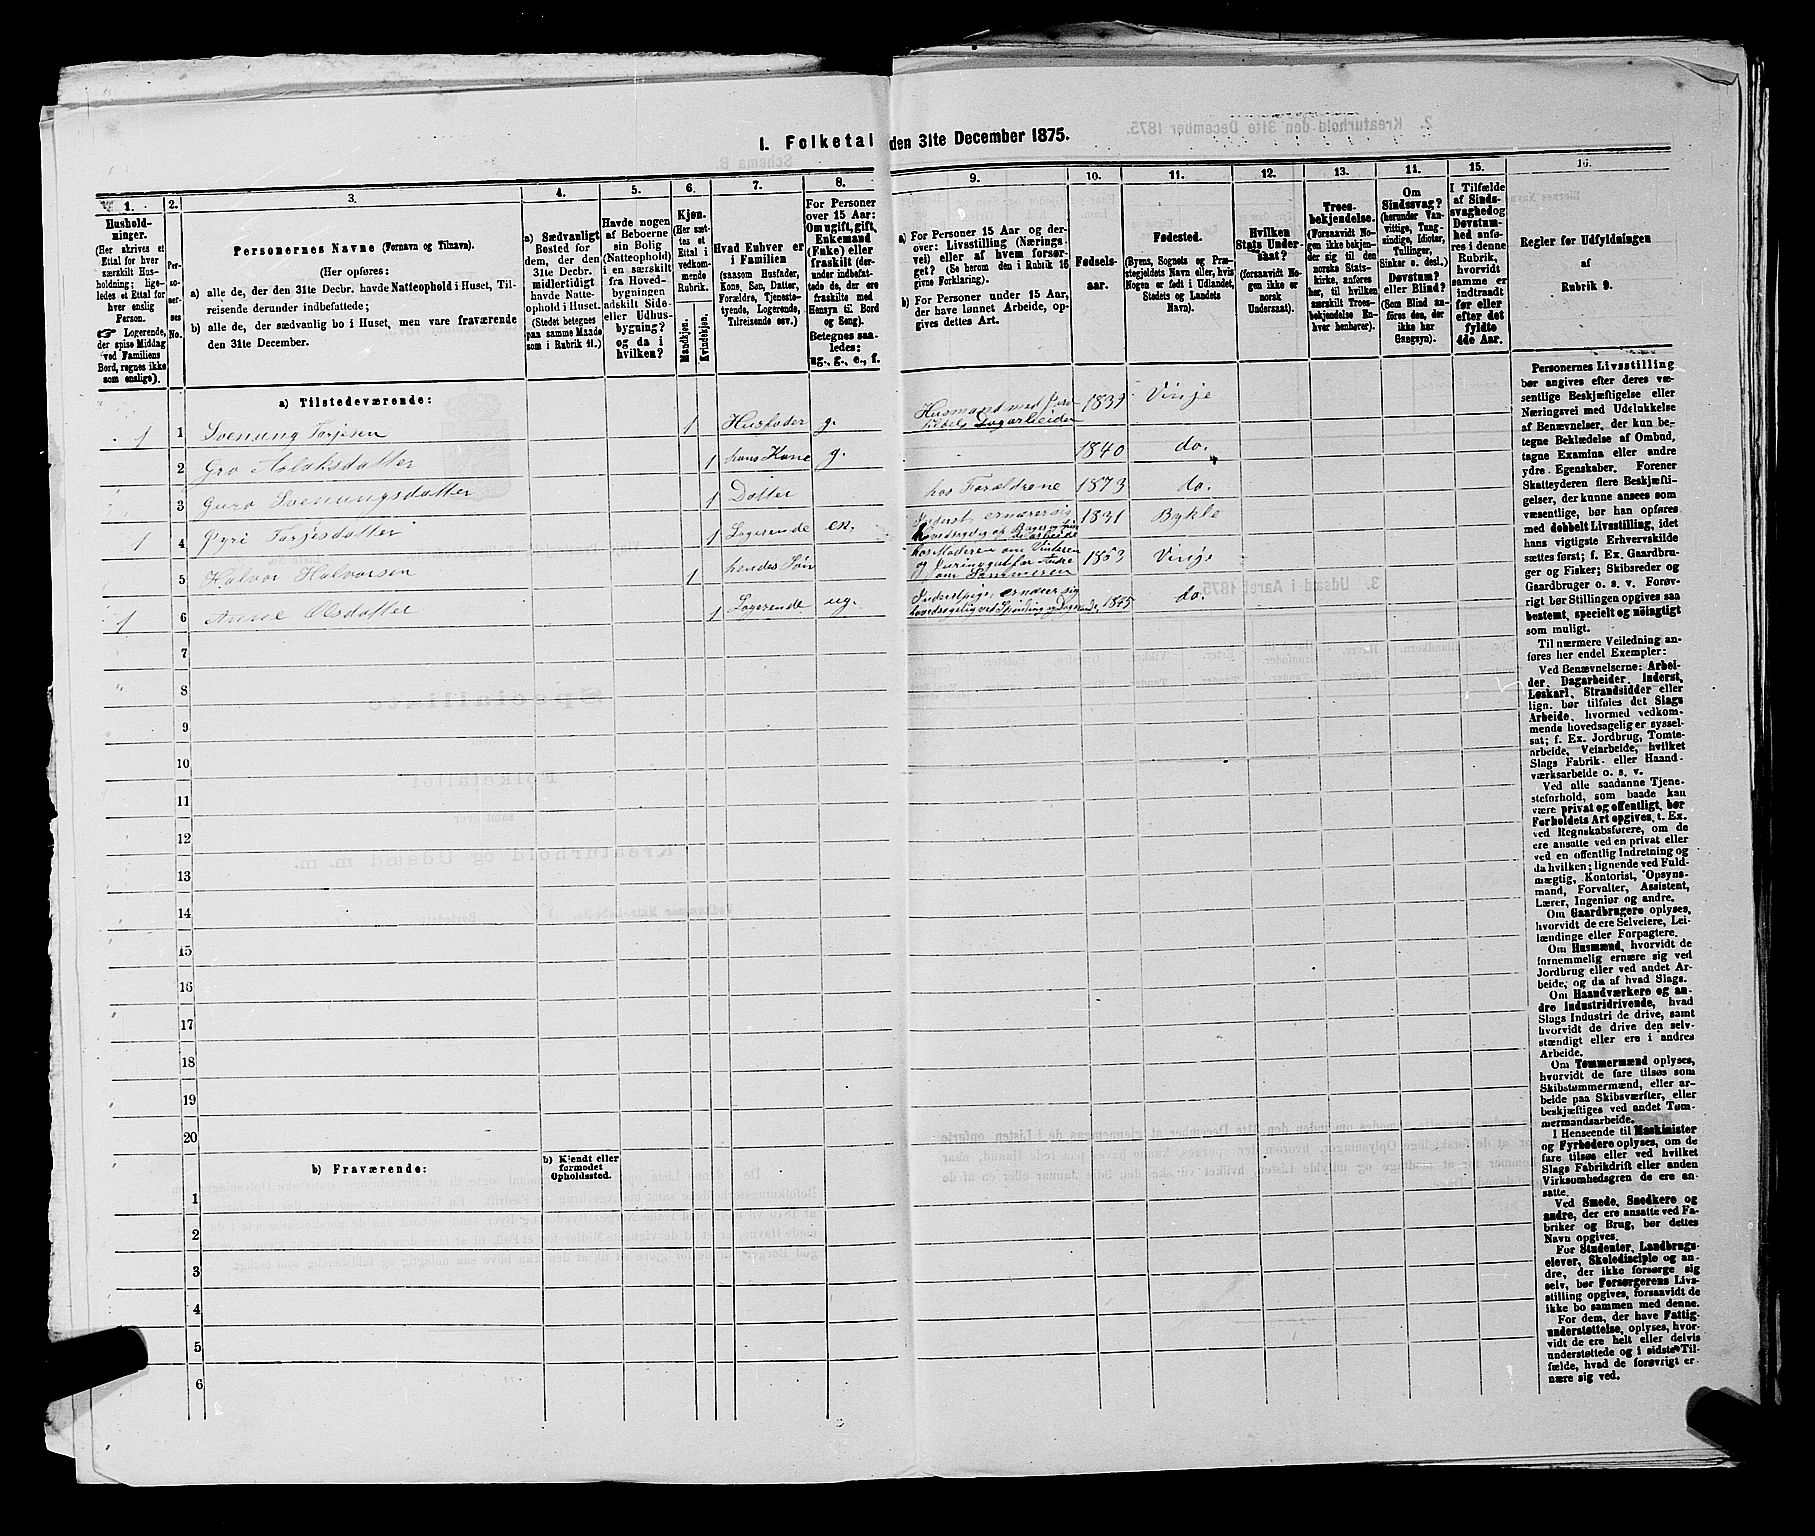 1. Folketal den 31te December 1875.
1.
Hushold-
ninger.
(Her skrives et
Ettal for hver
særskilt Hus-
holdning; lige-
ledes et Ettal for
hver enslig
Person.
☞ Logerende,
der spise Middag
ved Familiens
Bord, regnes ikke
som enslige).
2.
Per-
so-
ner-
nes
No.
3.
Personernes Navne (Fornavn og Tilnavn).
(Her opføres:
a) alle de, der den 31te Decbr. havde Natteophold i Huset, Til-
reisende derunder indbefattede;
b) alle de, der sædvanlig bo i Huset, men vare fraværende
den 31te December.
4.
a) Sædvanligt
Bosted for
dem, der den
31te Decbr.
midlertidigt
havde Natte-
ophold i Huset.
(Stedet betegnes
paa samme Maade
som i Rubrik 11.)
5.
Havde nogen
af Beboerne
sin Bolig
(Natteophold)
i en særskilt
fra Hoved-
bygningen
adskilt Side-
eller Udhus-
bygning?
og da i
hvilken?
6.
Kjøn.
(Her sæt-
tes et
Ettal i
vedkom-
mende
Rubrik.
Mandkjøn.
Kvindekjøn.
7.
Hvad Enhver er
i Familien
(saasom Husfader,
Kone, Søn, Datter,
Forældre, Tjeneste-
tyende, Logerende,
Tilreisende osv.)
8.
For Personer
over 15 Aar:
Om ugift, gift,
Enkemand
(Enke) eller
fraskilt (der-
under indbefat-
tede de, der ere
fraskilte med
Hensyn til Bord
og Seng).
Betegnes saa-
ledes:
ug., g., e., f.
9.
a) For Personer 15 Aar og der-
over: Livsstilling (Nærings-
vei) eller af hvem forsør-
get? (Se herom den i Rubrik 16
givne Forklaring).
b) For Personer under 15 Aar,
der have lønnet Arbeide, op-
gives dettes Art.
10.
Fødsels-
aar.
11.
Fødested.
(Byens, Sognets og Præ-
stegjeldets Navn eller, hvis
Nogen er født i Udlandet,
Stedets og Landets
Navn).
12.
Hvilken
Stats Under-
saat?
(forsaavidt No-
gen ikke er
norsk
Undersaat).
13.
Troes-
bekjendelse.
(Forsaavidt No-
gen ikke bekjen-
der sig til den
norske Stats-
kirke, anføres
her, til hvilken
særskilt Troes-
bekjendelse En-
hver henhører).
14.
Om
Sindssvag?
(herunder Van-
vittige, Tung-
sindige, Idioter,
Tullinger,
Sinker o. desl.)
Døvstum?
eller Blind?
(Som Blind an-
føres den, der
ikke har
Gangsyn).
15.
I Tilfælde
af Sinds-
svaghed og
Døvstum-
hed anfø-
res i denne
Rubrik,
hvorvidt
samme er
indtraadt
før eller
efter det
fyldte
4de Aar.
16.
Regler for Udfyldningen
af
Rubrik 9.
a) Tilstedeværende:
1 1 Svenung Tarjesen 1 Husfader g. Husmand med Jord Dagarbeider 1839 Vinje
2 Gro Aslaksdatter 1 hans Kone g. 1840 do.
3 Guro Svenungsdatter 1 Datter hos Forældrene 1873 do.
1 4 Gyri Tarjesdatter 1 Logerende en. Inderst, ernærer sig hovedsagelig af 1831 Bykle
5 Halvor Halvorsen 1 hendes Søn hos Moderen om Vinteren og for Andre om Sommeren 1863 Vinje
1 6 Anne Olsdatter 1 Logerende ug. ernærer sig hovedsagelig ved Spinding og 1845 do.
7
8
9
10
11
12
13
14
15
16
17
18
19
20
b) Fraværende:
b) Kjendt eller
formodet
Opholdssted.
1
2
3
4
5
6
Personernes Livsstilling
bør angives efter deres væ-
sentlige Beskjæftigelse eller
Næringsvei med Udelukkelse
af Benævnelser, der kun be-
tegne Beklædelse af Ombud,
tagne Examina eller andre
ydre Egenskaber. Forener
Skatteyderen flere Beskjæfti-
gelser, der kunne ansees som
væsentlige, bør han opføres
med dobbelt Livsstilling, idet
hans vigtigste Erhvervskilde
sættes først; f. Ex. Gaardbru-
ger og Fisker; Skibsreder og
Gaardbruger o. s. v. Forøv-
rigt bør Stillingen opgives saa
bestemt, specielt og nöiagtigt
som muligt.
Til nærmere Veiledning an-
føres her endel Exempler:
Ved Benævnelserne: Arbei-
der, Dagarbeider, Inderst,
Løskarl, Strandsidder eller
lign. bør tilføies det Slags
Arbeide, hvormed vedkom-
mende hovedsagelig er syssel-
sat; f. Ex. Jordbrug, Tomte-
arbeide, Veiarbeide, hvilket
Slags Fabrik- eller Haand-
værksarbeide o. s. v.
Ved alle saadanne Tjene-
steforhold, som baade kan
være privat og offentligt, bør
Forholdets Art opgives, t. Ex.
ved Regnskabsførere, om de
ere ansatte ved en privat eller
ved en offentlig Indretning og
da hvilken; lignende ved Fuld-
mægtig, Kontorist, Opsyns-
mand, Forvalter, Assistent,
Lærer, Ingeniør og andre.
Om Gaardbrugere oplyses,
hvorvidt de ere Selveiere, Lei-
lændinge eller Forpagtere.
Om Husmænd, hvorvidt de
fornemmelig ernære sig ved
Jordbrug eller ved andet Ar-
beide, og da af hvad Slags.
Om Haandværkere og an-
dre Industridrivende, hvad
Slags Industri de drive, samt
hvorvidt de drive den selv-
stændigt eller ere i andres
Arbeide.
Om Tømmermænd oplyses,
hvorvidt de fare tilsøs som
Skibstømmermænd, eller ar-
beide paa Skibsværfter, eller
beskjæftiges ved andet Tøm-
mermandsarbeide.
I Henseende til Maskinister
og Fyrbødere oplyses, om de
fare tilsøs eller ved hvilket
Slags Fabrikdrift eller anden
Virksomhedsgren de ere an-
satte.
Ved Smede, Snedkere og
andre, der ere ansatte ved Fa-
briker og Brug, bør dettes
Navn opgives.
For Studenter, Landbrugs-
elever, Skoledisciple og an-
dre, der ikke forsørge sig
selv, bør Forsørgerens Livs-
stilling opgives, forsaavidt de
ikke bo sammen med denne.
For dem, der have Fattig-
understøttelse, oplyses, hvor-
vidt de ere helt eller delvis
understøttede og i sidste Til-
fælde, hvad de forøvrigt er-
nære sig ved.